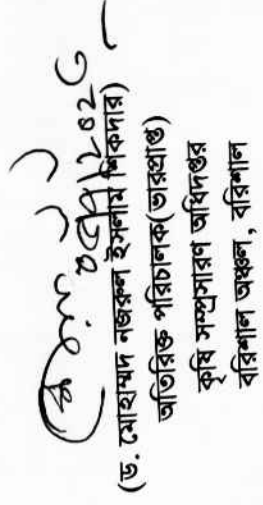 (ড. মোহাম্মদ নজরুল ইসলাম শিকদার)
অতিরিক্ত পরিচালক(ভারপ্রাপ্ত)
কৃষি সম্প্রসারণ অধিদপ্তর
বরিশাল অঞ্চল, বরিশাল